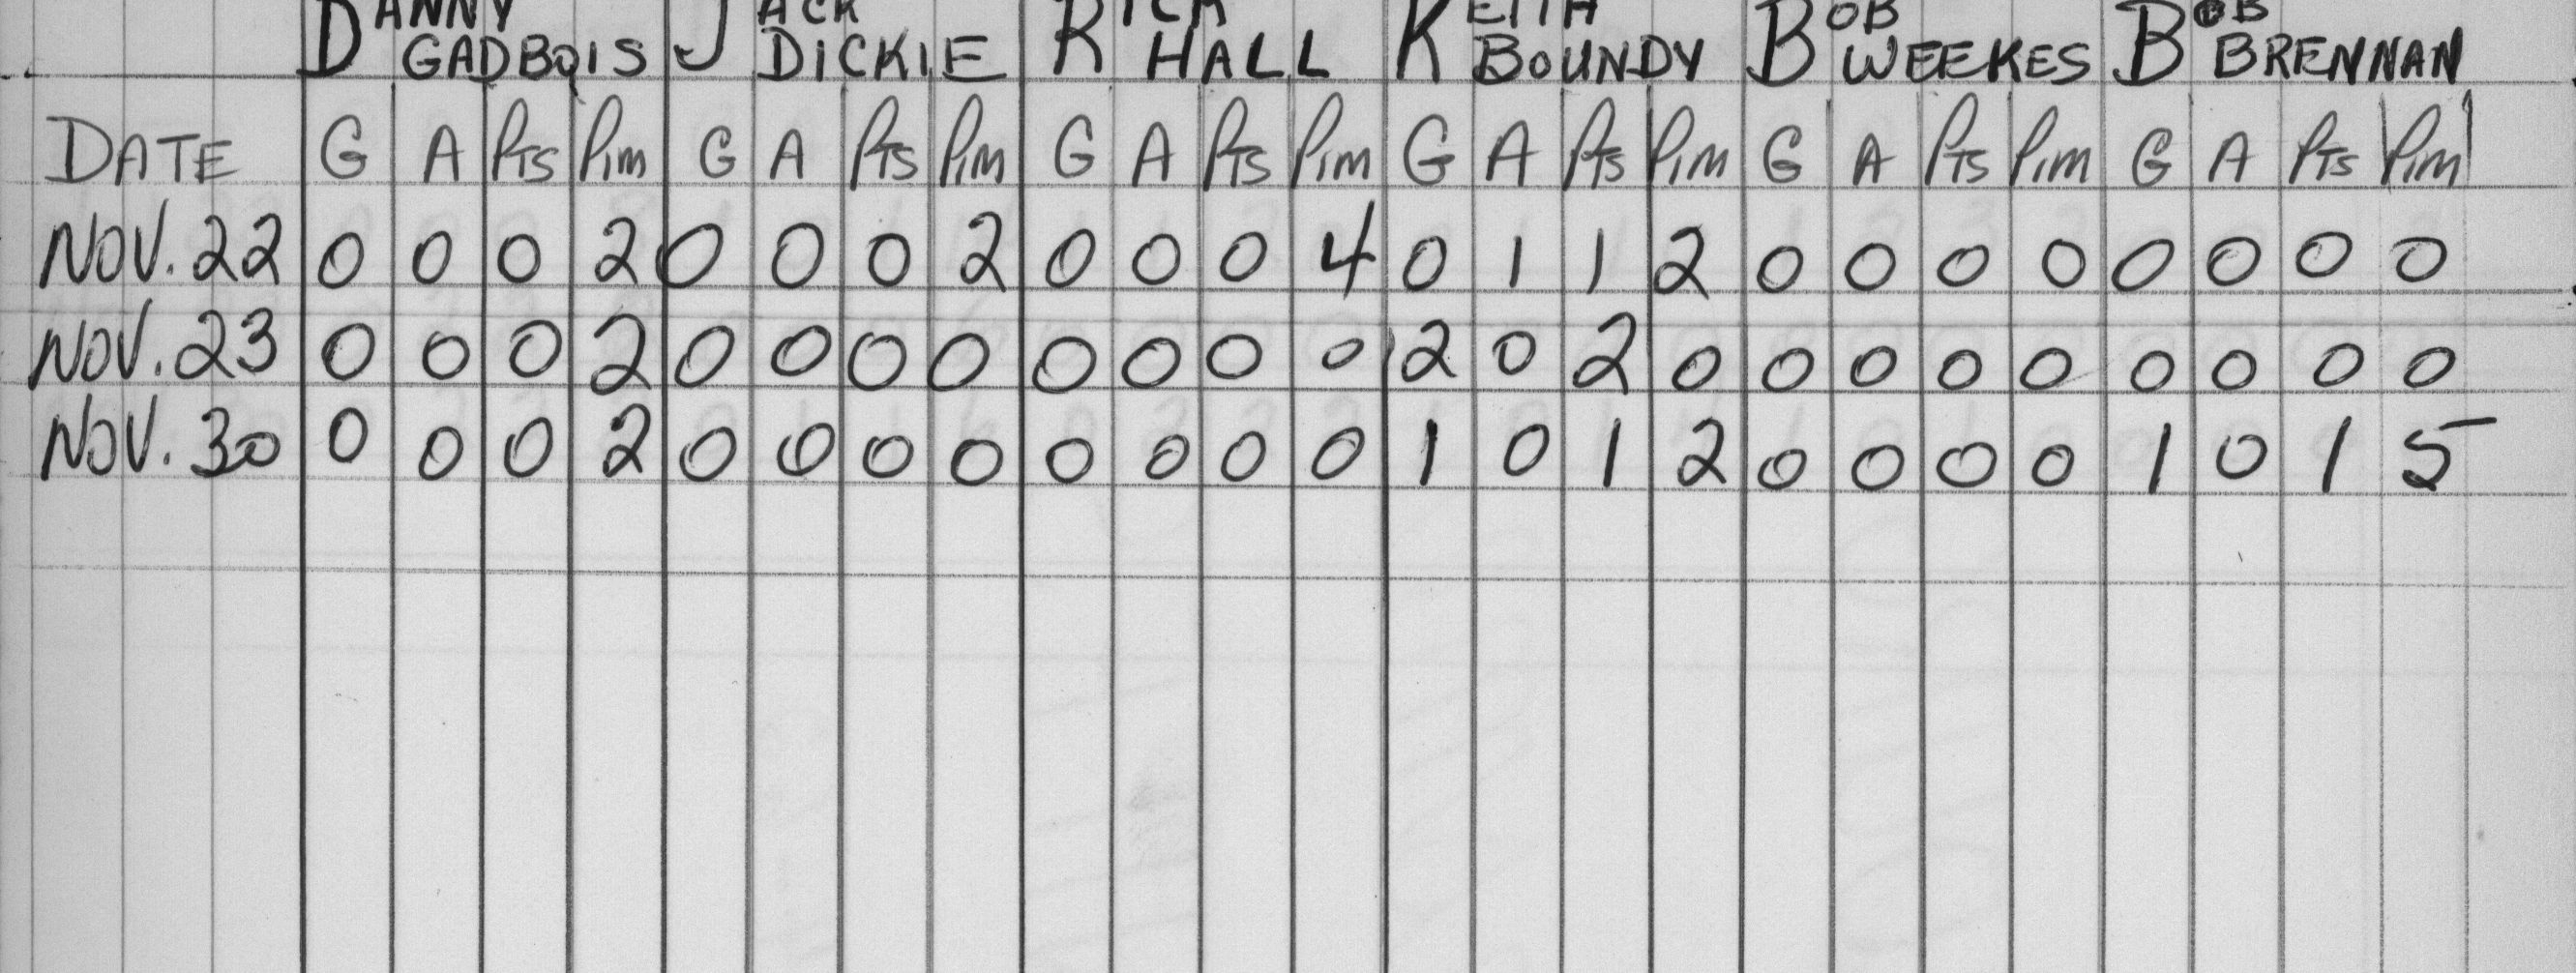 DANNY JACK RICK KEITH BOB BOB
GADBOIS DICKIE HALL BOUNDY WEEKES BRENNAN
DATE G A PTS PIM G A PTS PIM G A PTS PIM G A PTS PIM G A PTS PIM G A PTS PIM
NOV. 22 0 0 0 2 0 0 0 2 0 0 0 4 0 1 1 2 0 0 0 0 0 0 0 0
NOV. 23 0 0 0 2 0 0 0 0 0 0 0 0 2 0 2 0 0 0 0 0 0 0 0 0
NOV. 30 0 0 0 2 0 0 0 0 0 0 0 0 1 0 1 2 0 0 0 0 1 0 1 5